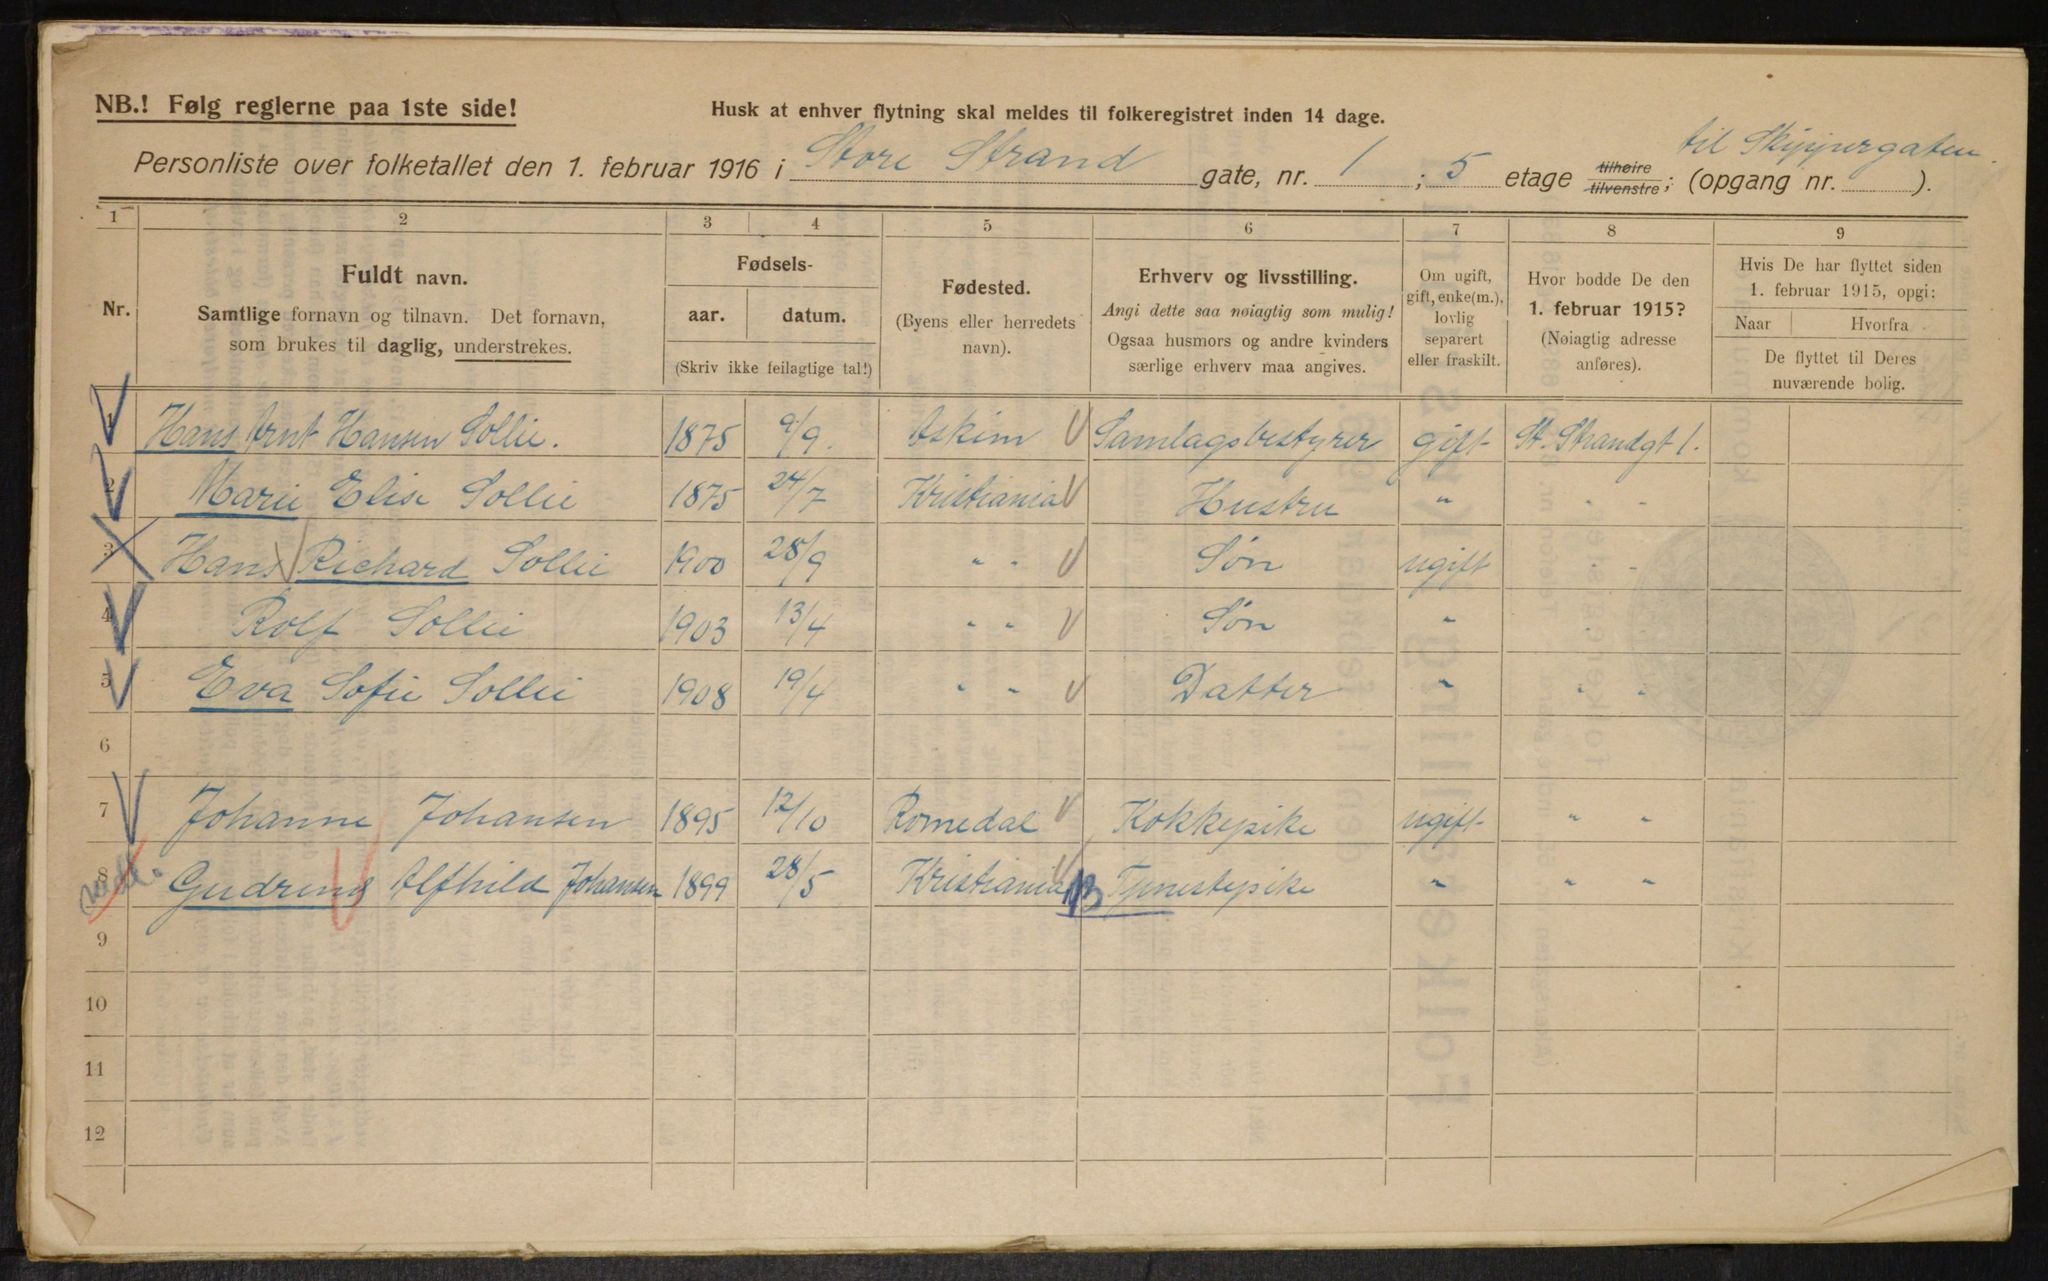 NB.! Følg reglerne paa 1ste side!
Husk at enhver flytning skal meldes til folkeregistret inden 14 dage.
til Skippergaten.
Personliste over folketallet den 1. februar 1916 i Store Strand gate, nr. 1 ; 5 etage tilhøire tilvenstre; (opgang nr. ).
1 2 3 4 5 6 7 8 9
Nr.
Fuldt navn.
Samtlige fornavn og tilnavn. Det fornavn,
som brukes til daglig, understrekes.
Fødsels-
aar. datum.
(Skriv ikke feilagtige tal!)
Fødested.
(Byens eller herredets
navn).
Erhverv og livsstilling.
Angi dette saa nøiagtig som mulig!
Ogsaa husmors og andre kvinders
særlige erhverv maa angives.
Om ugift,
gift, enke(m.),
lovlig
separert
eller fraskilt.
Hvor bodde De den
1. februar 1915?
(Nøiagtig adresse
anføres).
Hvis De har flyttet siden
1. februar 1915, opgi:
Naar Hvorfra
De flyttet til Deres
nuværende bolig.
1 Hans Arnt Hansen Sollie. 1875 9/9. Askim Samlagsbestyrer gift St. Strandgt 1.
2 Marie Elise Sollie 1875 24/7 Kristiania Hustru " " "
3 Hans Richard Sollie 1900 28/9 " " Søn ugift " "
4 Rolf Sollie 1903 13/4 " " Søn " "
5 Eva Sofie Sollie 1908 19/4 " " Datter " " "
6
7 Johanne Johansen 1895 12/10 Romedal Kokkepike ugift " "
8 Gudrun Alfhild Johansen 1899 28/5 Kristiania Tjenestepike " " "
9
10
11
12